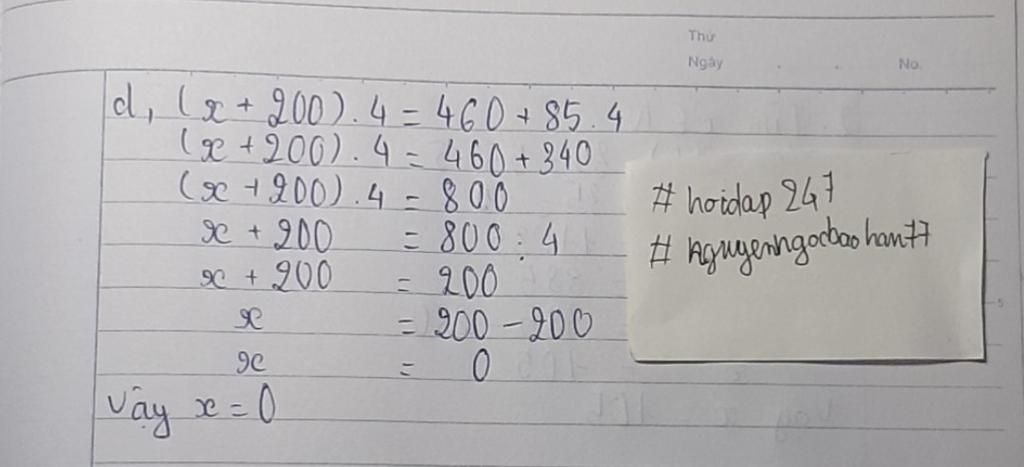 Thứ
Ngày . . No.
d, (x + 200) . 4 = 460 + 85 . 4
(x + 200) . 4 = 460 + 340
(x + 200) . 4 = 800
x + 200 = 800 : 4
x + 200 = 200
x = 200 - 200
x = 0
Vậy x = 0
# hoidap 247
# nguyenngocbaohan77